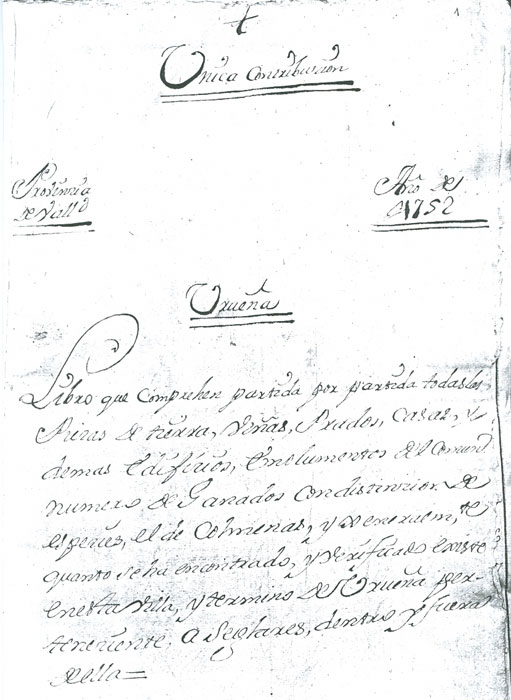 1
Unica Contribucion
Provincia
de Vall.d
Año de
1752
Urueña
Libro que Comprehen partida por partida todas las
Piezas de tierra, Viñas, Prados, Casas, y
demas Edificios, Emolumentos del Comun
numero de Ganados con distinzion de
especies, el de Colmenas, y generalm.te
quanto se ha encontrado, y Verificado existe
en esta Villa, y termino de Urueña per-
teneciente, a Seglares, dentro y fuera
de ella=